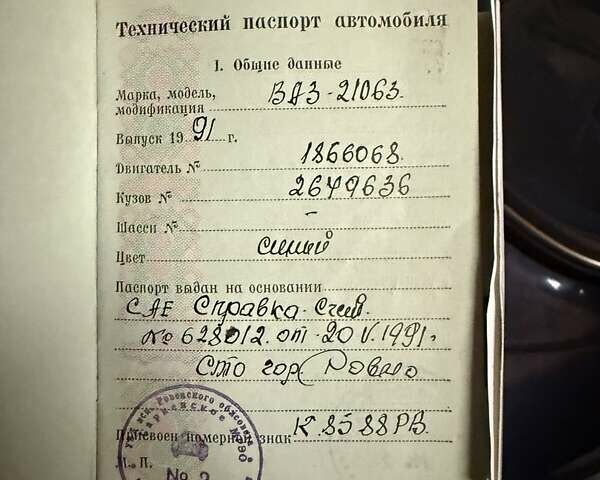 Технический паспорт автомобиля
I. Общие данные
Марка, модель, модификация ВАЗ-21063
Выпуск 1991 г.
Двигатель № 1866068
Кузов № 2649636
Шасси № –
Цвет синий
Паспорт выдан на основании
Справка-Счет
№ 628012 от 20 V. 1991г.
Сто гор Ровно
Присвоен номерной знак К 8588 РВ
М. П.
№ 2